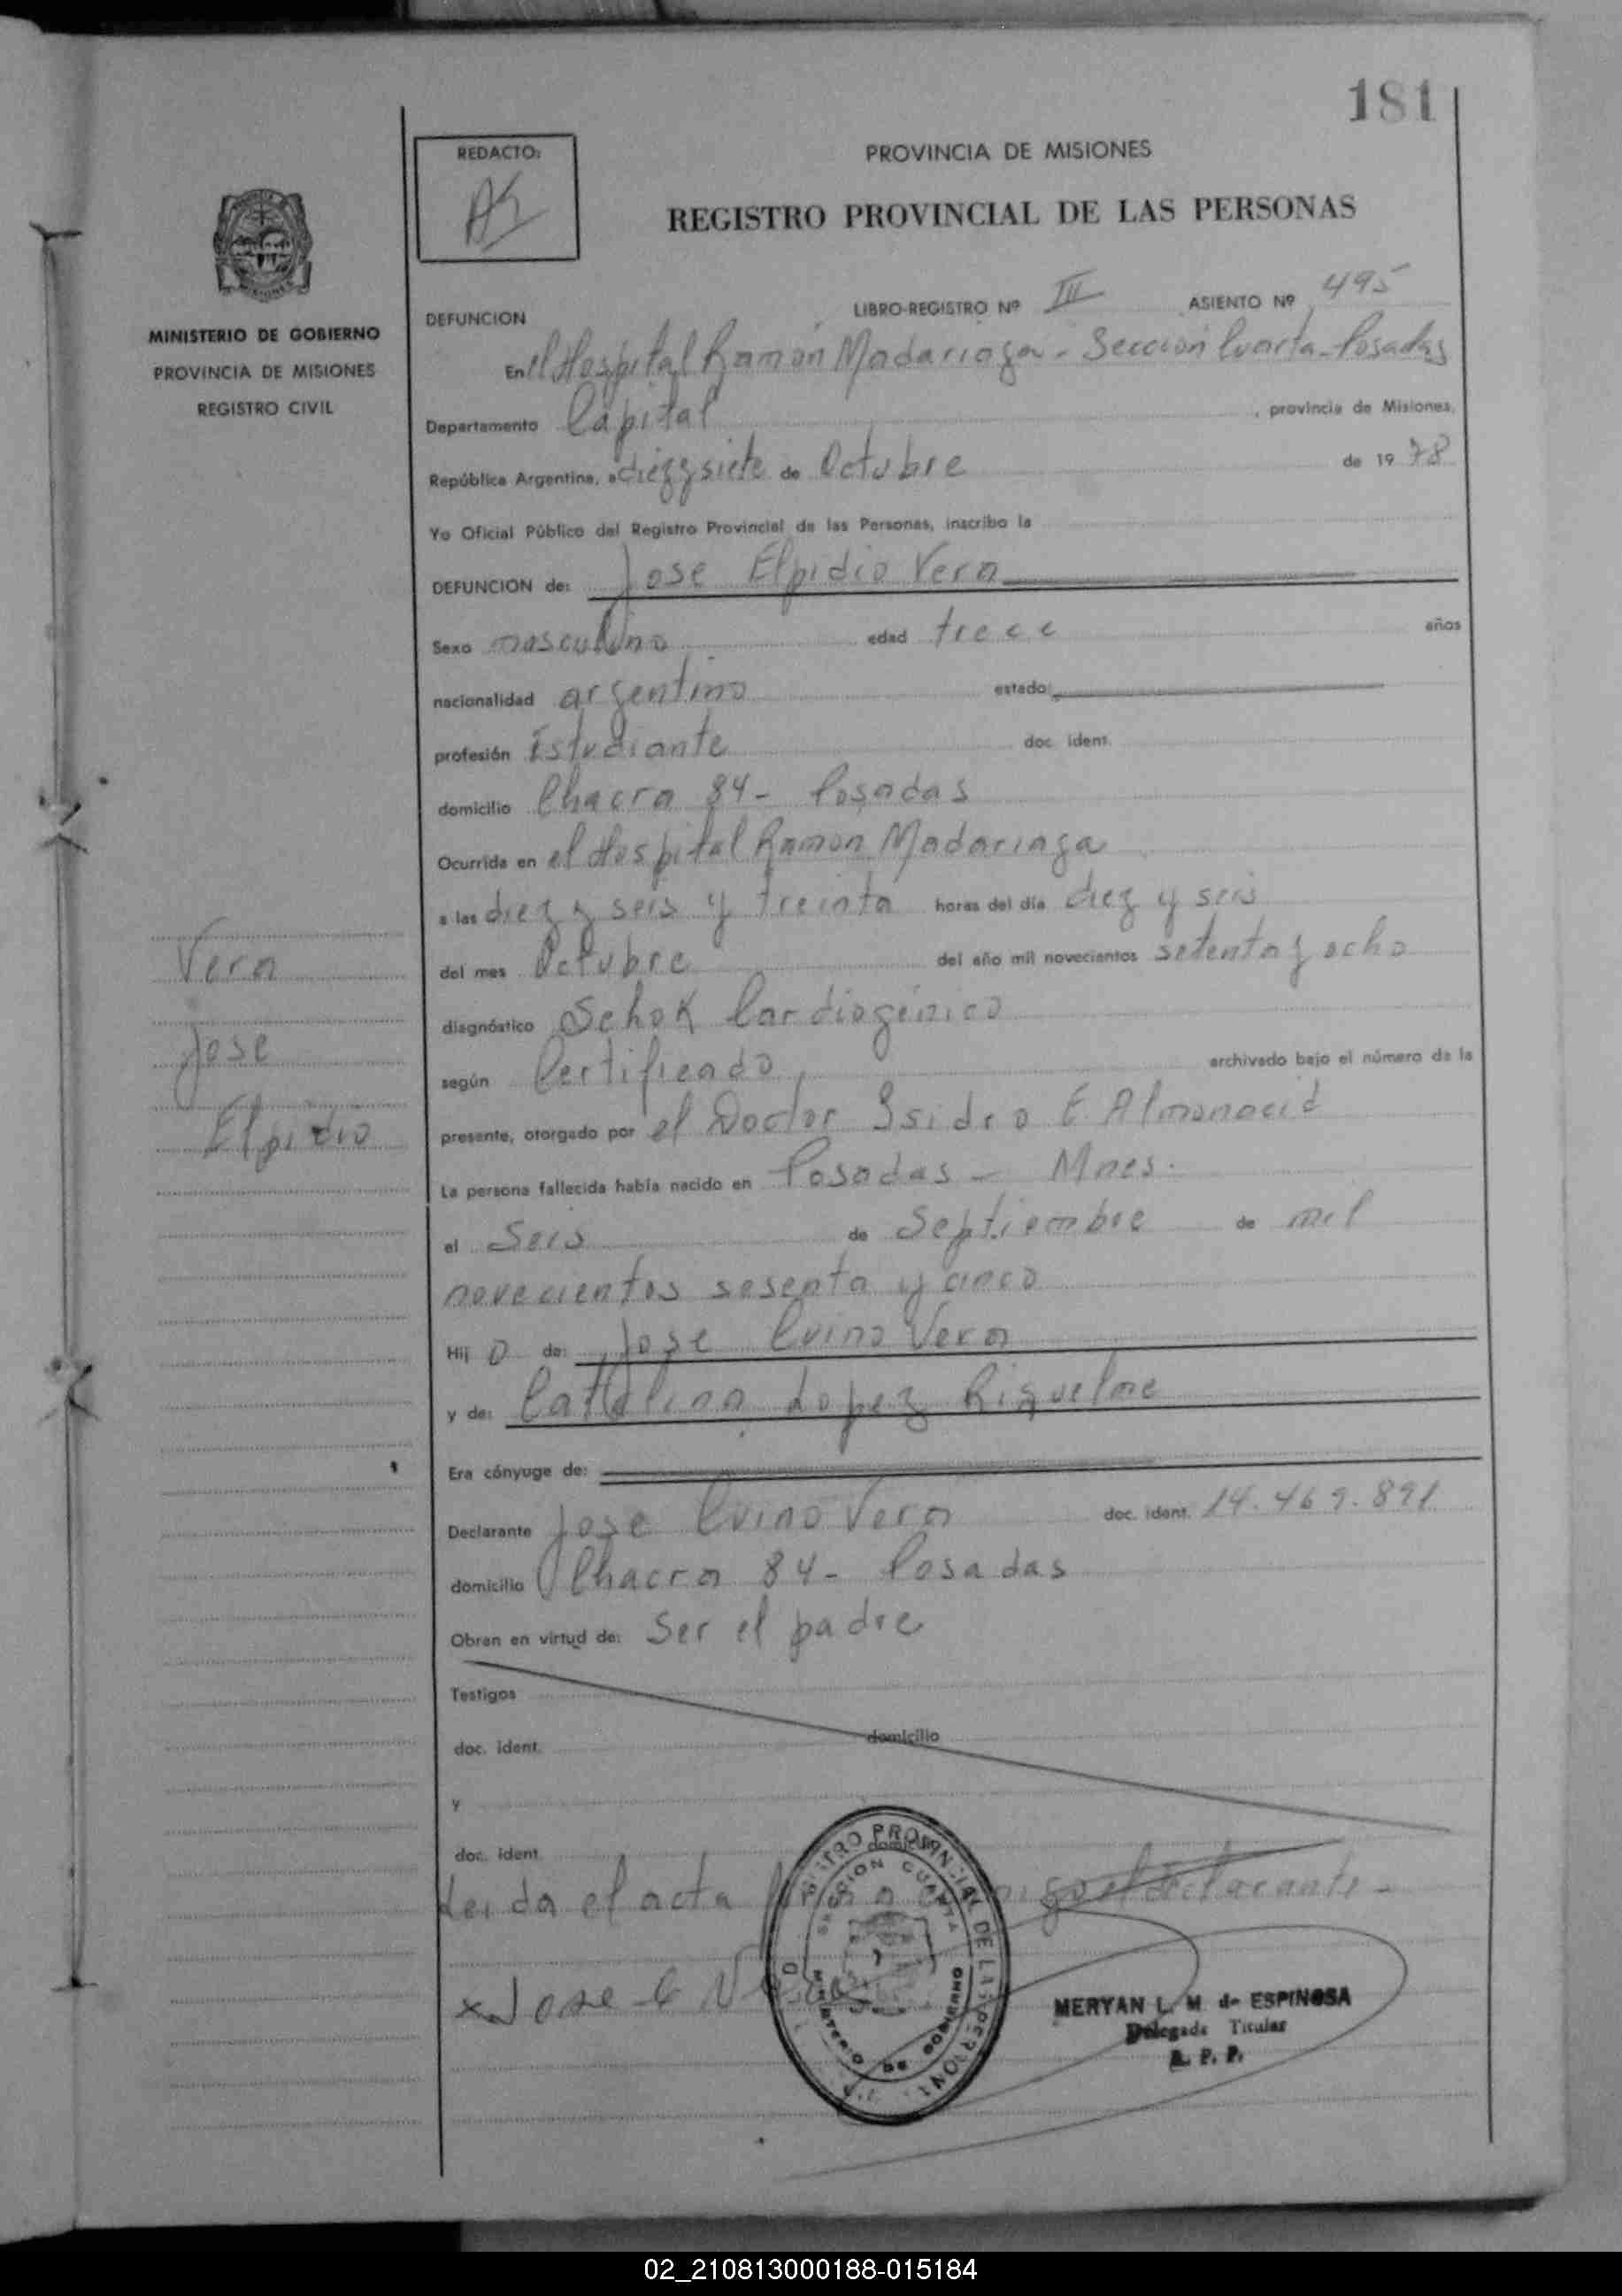 181
REDACTO:
PROVINCIA DE MISIONES
REGISTRO PROVINCIAL DE LAS PERSONAS
MINISTERIO DE GOBIERNO
PROVINCIA DE MISIONES
REGISTRO CIVIL
DEFUNCION LIBRO-REGISTRO Nº III ASIENTO Nº 495
En el Hospital Ramón Madariaga - Sección Cuarta - Posadas
Departamento Capital, provincia de Misiones,
República Argentina, a diez y siete de Octubre de 1978
Yo Oficial Público del Registro Provincial de las Personas, inscribo la
DEFUNCION de: Jose Elpidio Vera
Sexo masculino edad trece años
nacionalidad argentino estado:
profesión Estudiante doc. ident.
domicilio Chacra 84 - Posadas
Ocurrida en el Hospital Ramon Madariaga
a las diez y seis y treinta horas del día diez y seis
del mes Octubre del año mil novecientos setenta y ocho
diagnóstico Schok Cardiogénico
según Certificado archivado bajo el número de la
presente, otorgado por el Doctor Isidro E Almonacid
La persona fallecida había nacido en Posadas - Mnes.
el Seis de Septiembre de mil
novecientos sesenta y cinco
Hij o de: Jose Cvino Vera
y de: Catalina Lopez Riquelme
Era cónyuge de:
Declarante Jose Cvino Vera doc. ident. 14.469.891
domicilio Chacra 84 - Posadas
Obran en virtud de: Ser el padre
Testigos
doc. ident. domicilio
y
doc. ident. domicilio
Leida el acta el declarante -
x Jose C Vera
Vera
Jose
Elpidio
REGISTRO PROVINCIAL DE LAS PERSONAS
SECCION CUARTA
MINISTERIO DE GOBIERNO
MERYAN L. M de ESPINOSA
Delegada Titular
R. P. P.
02_210813000188-015184